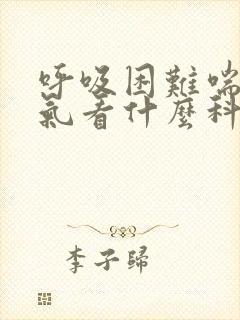 呼吸困難喘
氣看什麼科
李子歸